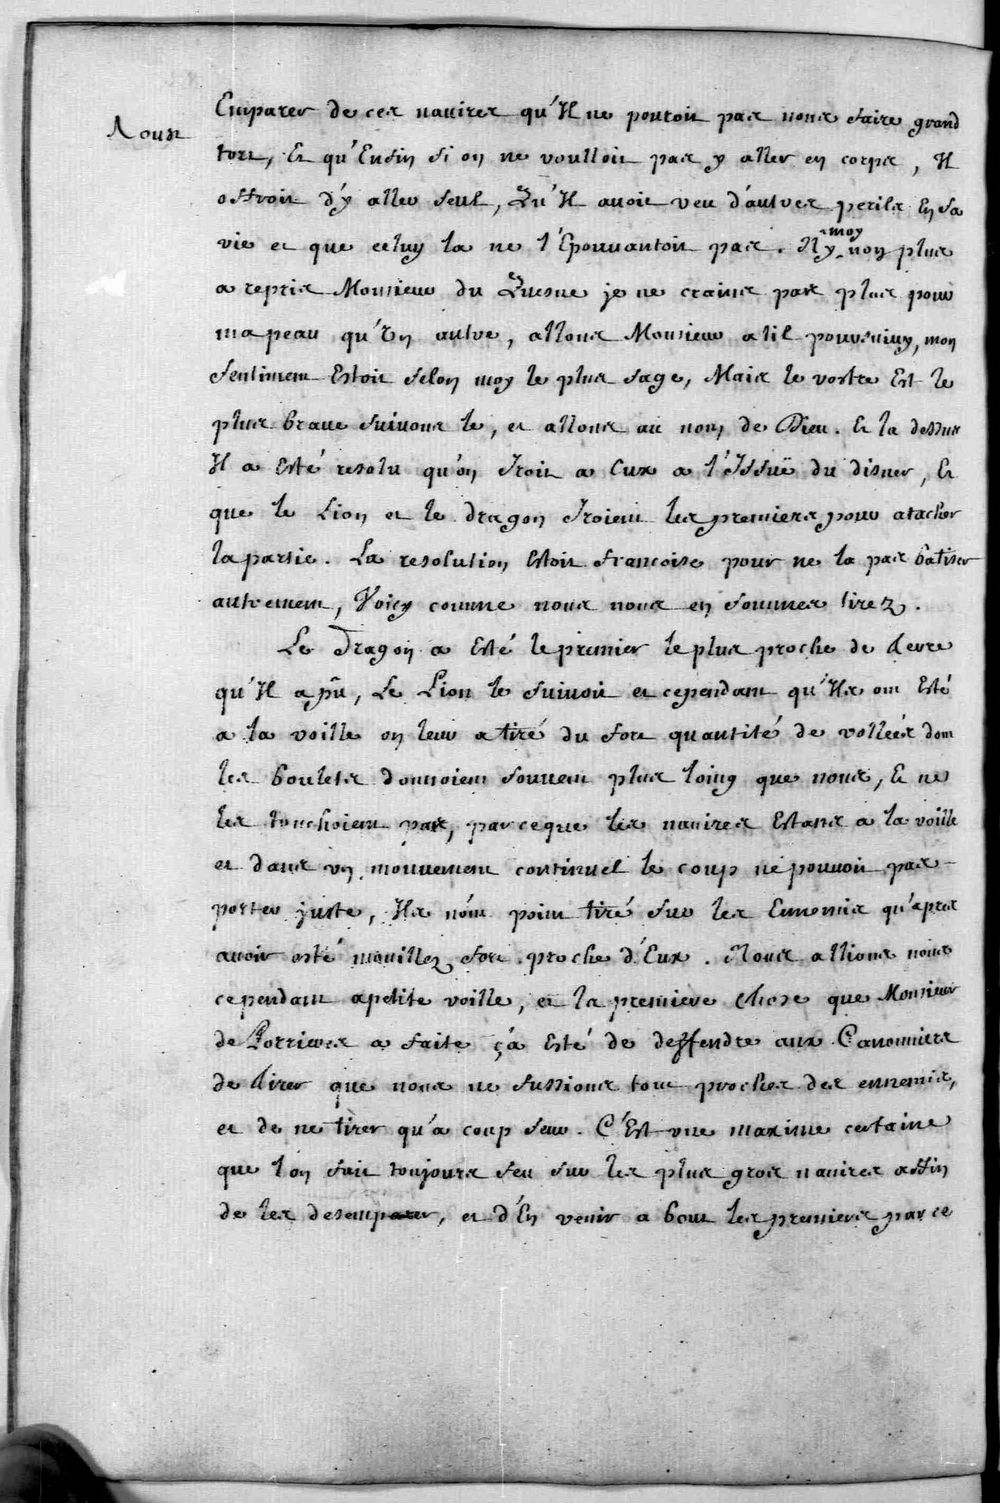 Aoust
Emparer de ces navires qu'Il ne pouvoit pas nous faire grand
tort, Et qu'Enfin si on ne voulloit pas y aller en corps, Il
offroit d'y aller seul, Qu'Il avoit veu d'autres perils En sa
vie et que celuy la ne l'Epouvantoit pas. Ny moy non plus
a repris Monsieur du Quesne je ne crains pas plus pour
ma peau qu'Un autre, allons Monsieur a til poursuivy, mon
sentiment Estoit selon moy le plus sage, Mais le vostre Est le
plus brave suivons le, et allons au nom de Dieu. Et la dessus
Il a Esté resolu qu'on Iroit a Eux a l'Issuë du disner, Et
que le Lion et le dragon Iroient les premiers pour atacher
la partie. La resolution Estoit francoise pour ne la pas batiser
autrement, Voicy comme nous nous en sommes tirez.
Le Dragon a Esté le premier le plus proche de terre
qu'Il a pû, Le Lion le suivoit et cependant qu'Ils ont Esté
a la voille on leur a tiré du fort quantité de vollées dont
les boulets donnoient souvent plus loing que nous, Et ne
les touchoient pas, parceque les navires Estans a la voille
et dans un mouvement continuel le coup ne pouvoit pas
porter juste, Ils n'ont point tiré sur les Ennemis qu'apres
avoir esté mouillez fort proche d'Eux. Nous allions nous
cependant a petite voille, et la premiere chose que Monsieur
de Porrieres a faite ç'a Esté de deffendre aux Canonniers
de tirer que nous ne fussions tout proches des ennemis,
et de ne tirer qu'a coup seur. C'Est une maxime certaine
que l'on fait toujours feu sur les plus gros navires affin
de les desemparer, et d'En venir a bout les premiers parce